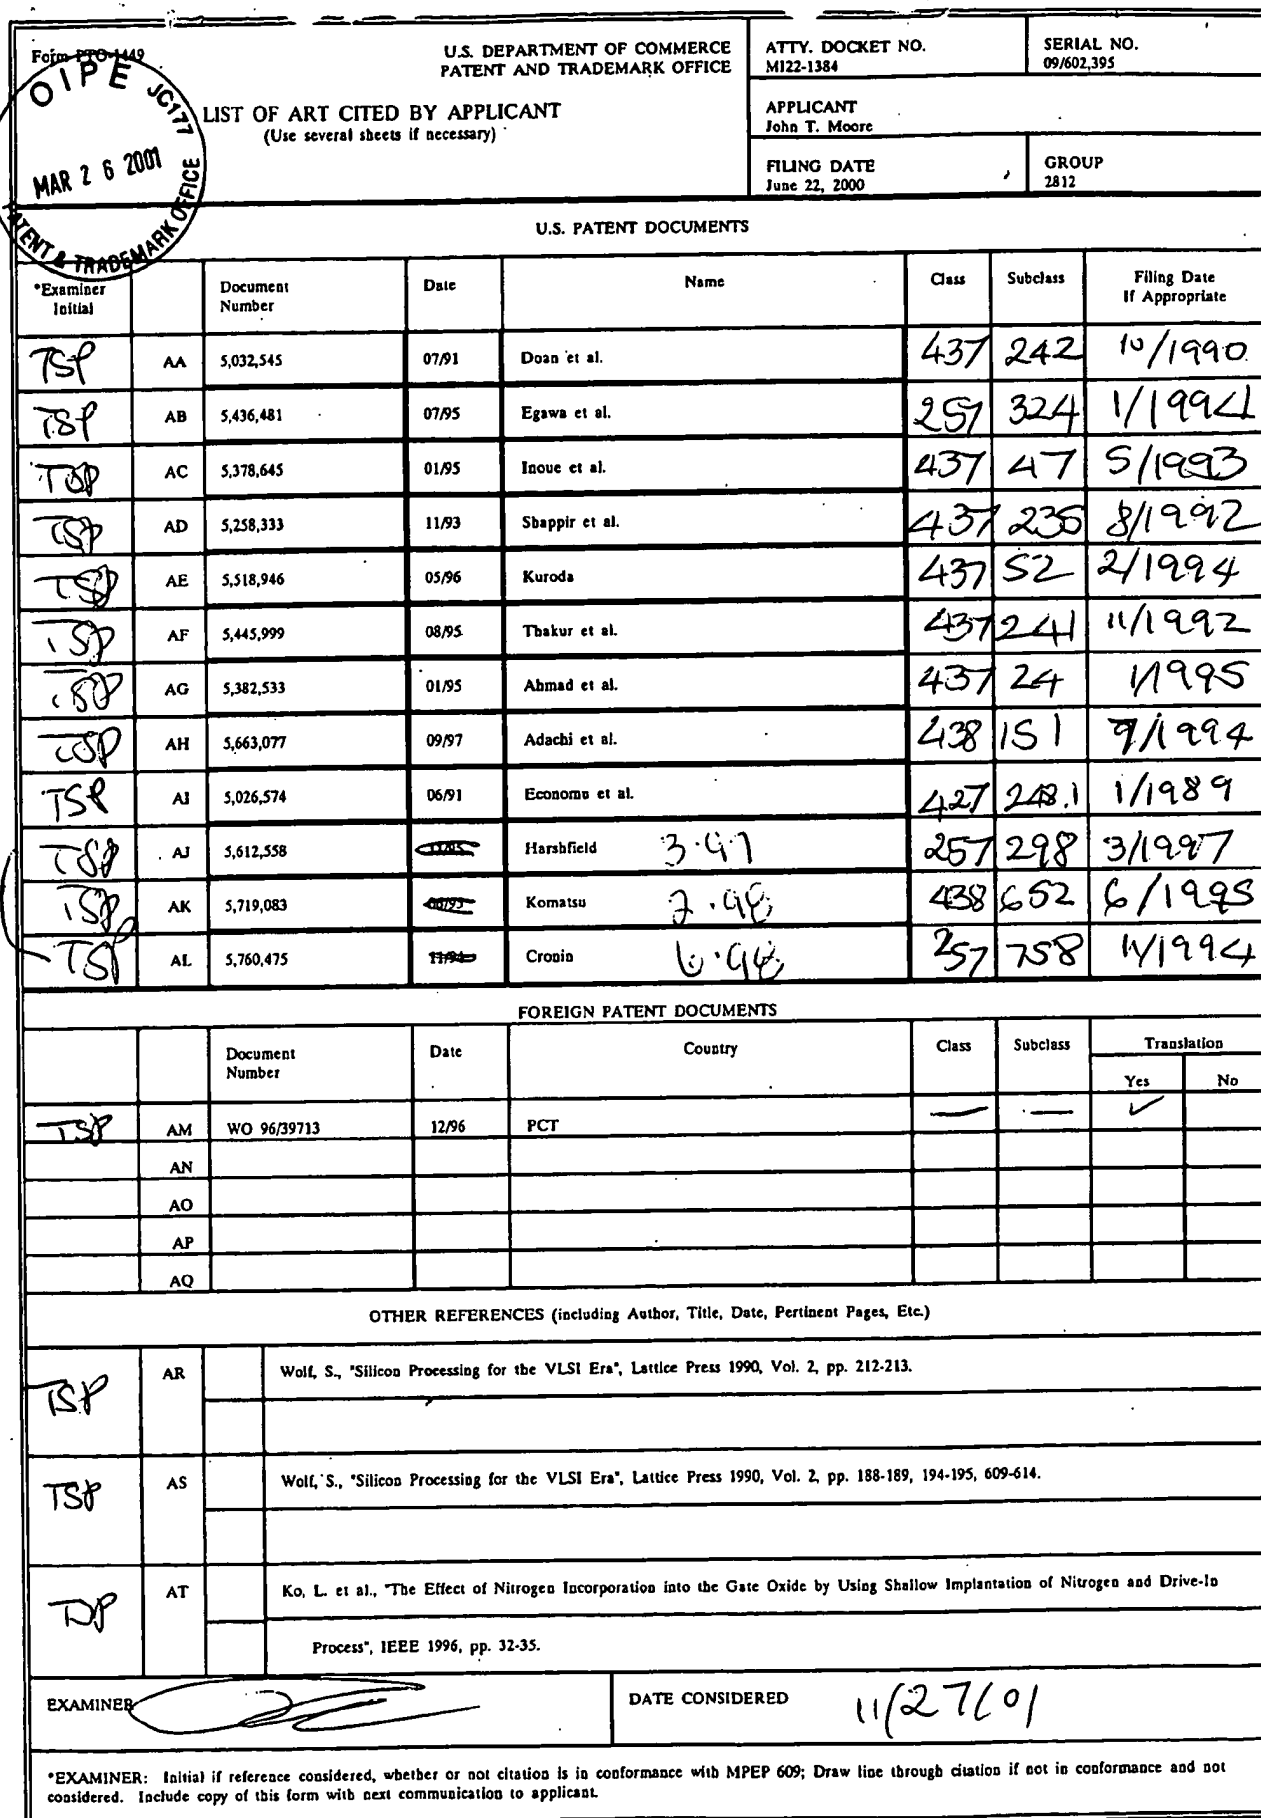 Form PTO-1449
U.S. DEPARTMENT OF COMMERCE
PATENT AND TRADEMARK OFFICE
ATTY. DOCKET NO.
MI22-1384
SERIAL NO.
09/602,395
OIPE JC177
MAR 26 2001
PATENT & TRADEMARK OFFICE
LIST OF ART CITED BY APPLICANT
(Use several sheets if necessary)
APPLICANT
John T. Moore
FILING DATE
June 22, 2000
GROUP
2812
U.S. PATENT DOCUMENTS
*Examiner Initial Document Number Date Name Class Subclass Filing Date If Appropriate
TSP AA 5,032,545 07/91 Doan et al. 437 242 10/1990
TSP AB 5,436,481 07/95 Egawa et al. 257 324 1/1994
TSP AC 5,378,645 01/95 Inoue et al. 437 47 5/1993
TSP AD 5,258,333 11/93 Shappir et al. 437 235 8/1992
TSP AE 5,518,946 05/96 Kuroda 437 52 2/1994
TSP AF 5,445,999 08/95 Thakur et al. 437 241 11/1992
TSP AG 5,382,533 01/95 Ahmad et al. 437 24 1/1995
TSP AH 5,663,077 09/97 Adachi et al. 438 151 9/1994
TSP AI 5,026,574 06/91 Economu et al. 427 248.1 1/1989
TSP AJ 5,612,558 Harshfield 3.97 257 298 3/1997
TSP AK 5,719,083 Komatsu 2.98 438 652 6/1995
TSP AL 5,760,475 11/94 Cronin 6.98 257 758 11/1994
FOREIGN PATENT DOCUMENTS
Document Number Date Country Class Subclass Translation
Yes No
TSP AM WO 96/39713 12/96 PCT — — ✓
AN
AO
AP
AQ
OTHER REFERENCES (including Author, Title, Date, Pertinent Pages, Etc.)
TSP AR Wolf, S., "Silicon Processing for the VLSI Era", Lattice Press 1990, Vol. 2, pp. 212-213.
TSP AS Wolf, S., "Silicon Processing for the VLSI Era", Lattice Press 1990, Vol. 2, pp. 188-189, 194-195, 609-614.
TSP AT Ko, L. et al., "The Effect of Nitrogen Incorporation into the Gate Oxide by Using Shallow Implantation of Nitrogen and Drive-In
Process", IEEE 1996, pp. 32-35.
EXAMINER
DATE CONSIDERED 11/27/01
*EXAMINER: Initial if reference considered, whether or not citation is in conformance with MPEP 609; Draw line through citation if not in conformance and not
considered. Include copy of this form with next communication to applicant.